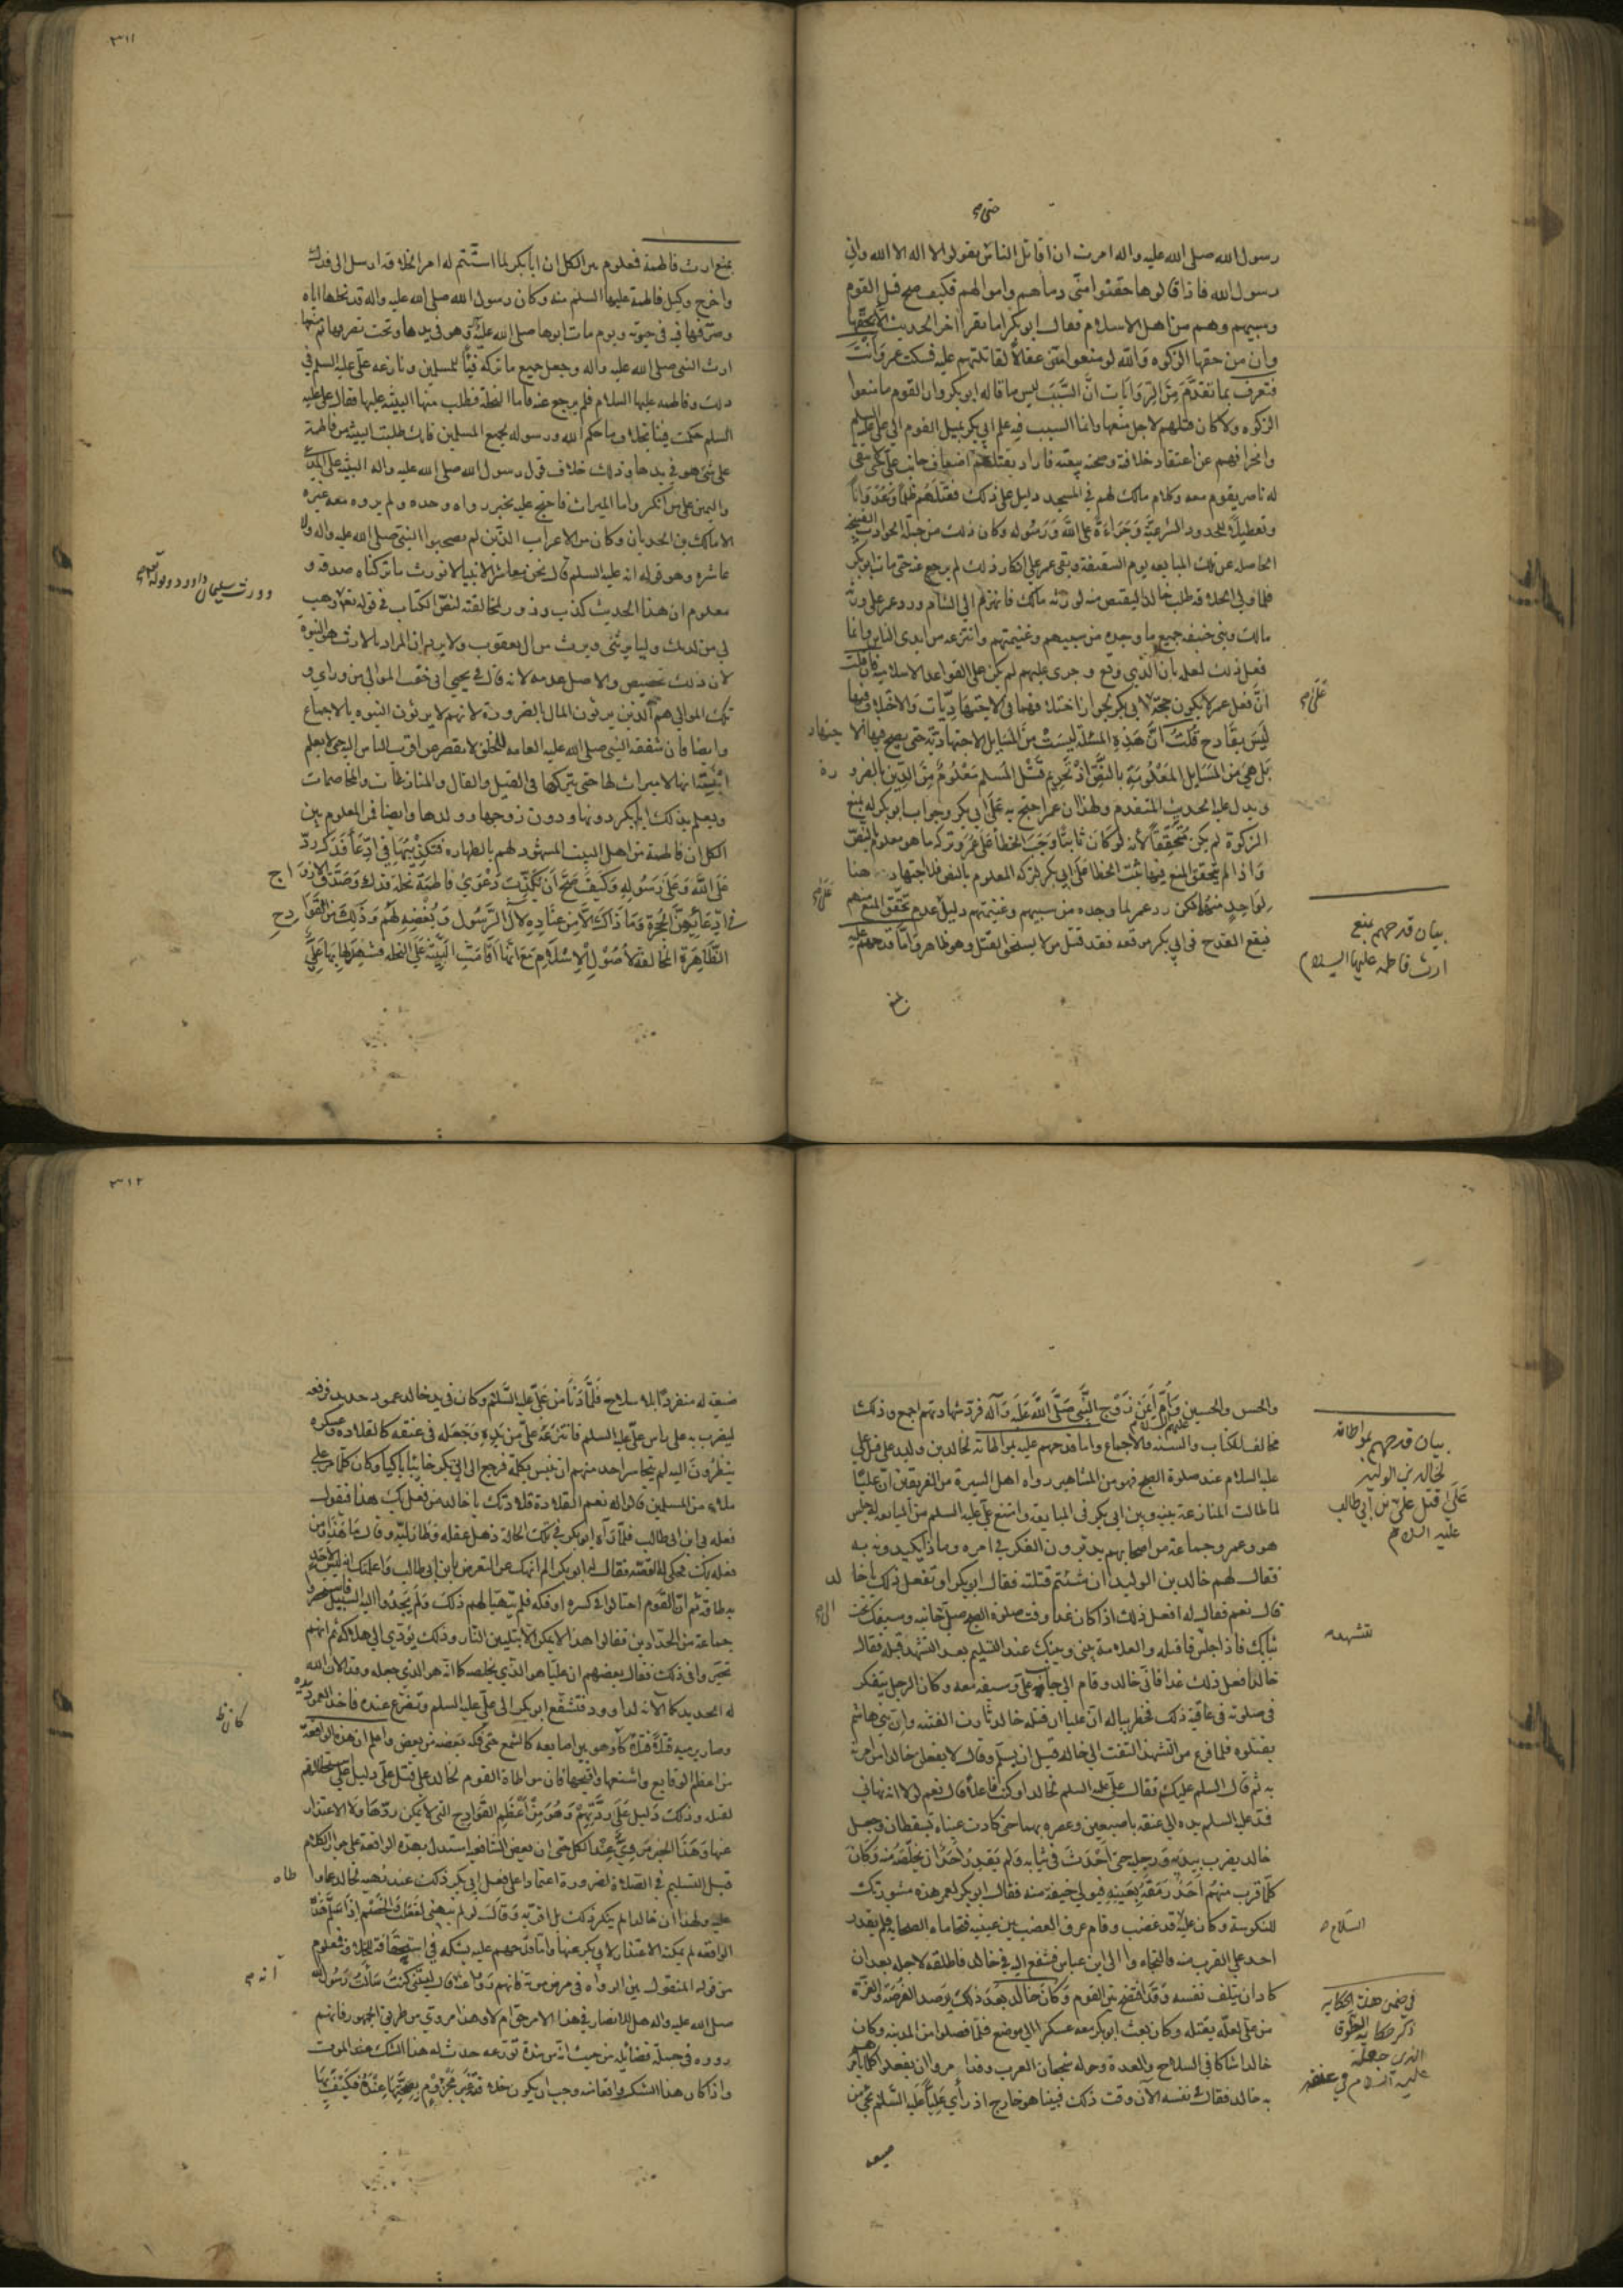 رسول الله صلى الله عليه واله امرت ان اقاتل الناس يقولوا لا اله الا الله واني
رسول الله فاذا قالوها حقنوا مني دماءهم واموالهم فكيف صح قتل القوم
وسبيهم وهم من اهل الاسلام فقال ابو بكر اما تقرا اخر الحديث الا بحقها
وان من حقها الزكوه والله لو منعوا مني عقالا لقاتلتهم عليه فسكت عمر وانت
فتعرف بما تقدم من الروايات ان السبب ليس ما قاله ابو بكر وان القوم ما منعوا
الزكوه ولا كان قتلهم لاجل منعها وانما السبب فيه علم ابي بكر بميل القوم الى علي عليه السلم
وانحرافهم عن اعتقاد خلافة وصحة بيعته فاراد بقتلهم اضعاف جانب علي لئلا يبقى
له ناصر يقوم معه وكلام مالك لهم في المسجد دليل على ذلك فقتلهم ظلما وعدوانا
وتعطيلا للحدود الشرعية وجراءة على الله ورسوله وكان ذلك من جملة الحوادث القبيحة
الحاصله عن تلك المبايعه يوم السقيفة وبقي عمر على انكار ذلك لم يرجع عنه حتى مات ابو بكر
فلما ولي الخلافة طلب خالدا ليقتص منه لورثه مالك فانهزم الى الشام ورد عمر على ورثة
مالك وبني حنيفه جميع ما وجده من سبيهم وغنيمتهم وانتزعه من ايدي الناس وانما
فعل ذلك لعلمه بان الذي وقع وجرى عليهم لم يكن على القواعد الاسلاميه فان قلت
ان فعل عمر لا يكون حجة لابي بكر لجواز اختلافهما في الاجتهاديات والاختلاف فيها
ليس بقادح قلت ان هذه المسئلة ليست من المسايل الاجتهادية حتى يصح فيها الاجتهاد
بل هي من المسايل المعلومة بالنص اذ تحريم قتل المسلم معلوم من الدين بالضرورة
ويدل عليه الحديث المتقدم ولهذا ان عمر احتج به على ابي بكر وجواب ابو بكر له بمنع
الزكوة لم يكن متحققا لانه لو كان ثابتا وجب الخطا على عمر وتركه ما هو معلوم بالنص
واذا لم يتحقق المنع فيها ثبت الخطا على ابي بكر لتركه المعلوم بالنص فلا اجتهاد هنا
لواحد منهما لكن رد عمر لما وجده من سبيهم وغنيمتهم دليل عدم تحقق المنع منهم
فيقع القدح في ابي بكر موقعه فقد قتل من لا يستحق القتل وهو ظاهر واما قدحهم عليه
بيان قدحهم بمنع
ارث فاطمه عليها السلام
٣١١
بمنع ارث فاطمة فمعلوم من الكل ان ابا بكر لما استتم له امر الخلافة ارسل الى فدك
واخرج وكيل فاطمة عليها السلم منه وكان رسول الله صلى الله عليه واله قد نحلها اياه
وصرفها فيه في حيوته ويوم مات ابوها صلى الله عليه وهو في يدها وتحت تصرفها ثم منعها
ارث النبي صلى الله عليه واله وجعل جميع ما تركه فيئا للمسلمين ونازعه علي عليه السلم في
ذلك وفاطمه عليها السلام فلم يرجع عنه فاما النحلة فطلب منها البينة عليها فقال علي عليه
السلم حكمت فينا بخلاف ما حكم الله ورسوله لجميع المسلمين فانك طلبت البينه من فاطمة
على شئ هو في يدها وذلك خلاف قول رسول الله صلى الله عليه واله البينه على المدعي
واليمين على من انكر واما الميراث فاحتج عليه بخبر رواه وحده ولم يروه معه غيره
الا مالك بن الحدثان وكان من الاعراب الذين لم يصحبوا النبي صلى الله عليه واله ولا
عاشره وهو قوله انه عليه السلم قال نحن معاشر الانبيا لا نورث ما تركناه صدقه و
معلوم ان هذا الحديث كذب وزور لمخالفته لنص الكتاب في قوله تعالى وهب
لي من لدنك وليا يرثني ويرث من ال يعقوب ولا يريد ان المراد بالارث هو النبوة
لان ذلك تخصيص والاصل عدمه لانه قال في يحيى اني خفت الموالي من وراي و
تلك الموالي هم الذين يرثون المال بالضرورة لانهم لا يرثون النبوه بالاجماع
وايضا فان شفقه النبي صلى الله عليه العامه للخلق لا تقصر عن اقرب الناس اليه حتى لا يعلم
ابنته انها لا ميراث لها حتى يتركها في القيل والقال والمنازعات والمخاصمات
ويعلم بذلك ابا بكر دونها ودون زوجها وولدها وايضا فمن المعلوم بين
الكل ان فاطمة من اهل البيت المشهود لهم بالطهاره فتكذيبها في ادعا فدك رد
على الله وعلى رسوله وكيف صح ان تكذب دعوى فاطمة نحلة فدك وصدق الازواج
في ادعائهن الحجرة وما ذاك الا من عناده لال الرسول وبغضه لهم وذلك من القوادح
الظاهرة المخالفة لاصول الاسلام مع انها اقامت البينة على النحله فشهد لها بها علي
وورث سليمان داود وقوله تعالى
والحسن والحسين وام ايمن زوج النبي صلى الله عليه وآله فرد شهادتهم اجمع وذلك
مخالف للكتاب والسنه والاجماع واما قدحهم عليه بمواطاته لخالد بن وليد على قتل علي
عليه السلام عند صلوة الصبح فهو من المشاهير رواه اهل السيرة من الفريقين ان عليا
لما طالت المنازعة بينه وبين ابي بكر في المبايعه وامتنع علي عليه السلم من المبايعه له جلس
هو وعمر وجماعة من اصحابهم يدبرون الفكر في امره وماذا يكيدونه به
فقال لهم خالد بن الوليد ان شئتم قتلته فقال ابو بكر او تفعل ذلك يا خالد
قال نعم فقال له افعل ذلك اذا كان غدا وقت صلوة الصبح صل الى جانبه وسيفك تحت
ثيابك فاذا جلس فاقتله والعلامة بيني وبينك عند التسليم بعد التشهد قبله فقال
خالد افعل ذلك غدا فاتى خالد وقام الى جانب علي وسيفه معه وكان الرجل يتفكر
في صلوته في عاقبة ذلك فخطر بباله ان عليا ان قتله خالد ثارت الفتنه وان بني هاشم
يقتلوه فلما فرغ من التشهد التفت الى خالد قبل ان يسلم وقال لا يفعلن خالد ما امرته
به ثم قال السلم عليكم فقال علي عليه السلم لخالد اوكنت فاعلا قال نعم لولا انه نهاني
فمد عليه السلم يده الى عنقه باصبعين وعصره بهما حتى كادت عيناه تسقطان وجعل
خالد يضرب بيديه ورجليه حتى احدث في ثيابه ولم يقدر احد ان يخلصه منه وكان
كلما قرب منهم احد رمقه بعينيه فيولي خيفة منه فقال ابو بكر لعمر هذه مشورتك
المنكوسة وكان علي قد غضب وقام عرق الغضب بين عينيه فتحاماه الصحابه فلم يقدر
احد على القرب منه فالتجاءوا الى ابن عباس فشفع اليه في خالد فاطلقه لاجله بعد ان
كاد ان يتلف نفسه وقد افتضح بين القوم وكان خالد بعد ذلك يرصد الفرصة والغرة
من علي لعله يقتله وكان بعث ابو بكر معه عسكرا الى موضع فلما فصلوا من المدينه وكان
خالد شاكا في السلاح والعدة وحوله شجعان العرب وقد امروا ان يفعلوا كلما يأمرهم
به خالد فقال في نفسه الآن وقت ذلك فبينا هو خارج اذ رأى عليا عليه السلام يجئ من
بيان قدحهم بمواطاته
لخالد بن الوليد
على قتل علي بن ابي طالب
عليه السلام
في ضمن هذه الحكايه
ذكر حكاية الطوق
الذي جعله
عليه السلام في عنقه
٣١٢
ضيعه له منفردا بلا سلاح فلما دنا من علي عليه السلم وكان في يد خالد عمود حديد فرفعه
ليضرب به على راس علي عليه السلم فانتزعه علي من يده وجعله في عنقه كالقلاده وعسكره
ينظرون اليه لم يتجاسر احد منهم ان ينبس بكلمة فرجع الى ابي بكر خائبا باكيا وكان كلما مر على
ملاء من المسلمين قالوا له نعم القلادة قلادتك يا خالد من فعل بك هذا فيقول
فعله بي ابن ابي طالب فلما رآه ابو بكر في تلك الحالة ذهل عقله وطار لبه وقال ما هذا ومن
فعله بك فحكى له القصه فقال له ابو بكر الم انهك عن التعرض بابن ابي طالب واعلمك انه ليس لاحد
به طاقة ثم ان القوم احتالوا في كسره او فكه فلم يتهيا لهم ذلك ولم يجدوا اليه السبيل فاستحضروا
جماعة من الحدادين فقالوا هذا لا يمكن الا بتليين النار وذلك يؤدي الى هلاكه ثم انهم
تحيروا في ذلك فقال بعضهم ان عليا هو الذي يخلصه كما انه هو الذي جعله وقد الان الله
له الحديد كما الانه لداوود فتشفع ابو بكر الى علي عليه السلم وتضرع عنده فاخذ العمود بيده
وصار يرميه فتلة فتلة كأنه وهو بين اصابعه كالشمع حتى فكه بعضه من بعض واعلم ان هذه الواقعة
من اعظم الوقايع واشنعها واقبحها فان مواطاة القوم لخالد على قتل علي دليل على استحلالهم
لقتله وذلك دليل على ردتهم وهو من اعظم القوادح التي لا يمكن ردها ولا الاعتذار
عنها وهذا الخبر مروي عند الكل حتى ان بعض الشافعيه استدل بهذه الواقعة على جواز الكلام
قبل التسليم في الصلاة لضرورة اعتمادا على فعل ابي بكر ذلك عند نهيه لخالد عما واطاه
عليه ولهذا ان خالدا لم ينكر ذلك بل اقر به وقال لو لم ينهني لفعلت والخصم اذا سلم هذه
الواقعه لم يمكنه الاعتذار لابي بكر عنها واما قدحهم عليه بشكه في استحقاقه للخلافة فمعلوم
من قوله المنقول بين الرواه في مرض موته لما نهم قال عند وفاته ليتني كنت سألت رسول الله
صلى الله عليه واله هل للانصار في هذا الامر حق ام لا وهذا مروي من طريق الجمهور فانهم
رووه في جملة فضايله من حيث انه من شدة تورعه حدث له هذا الشك عند الموت
واذا كان هذا الشك واقعا منه وجب ان يكون خلافته غير مجزوم بصحتها عنده فكيف بها